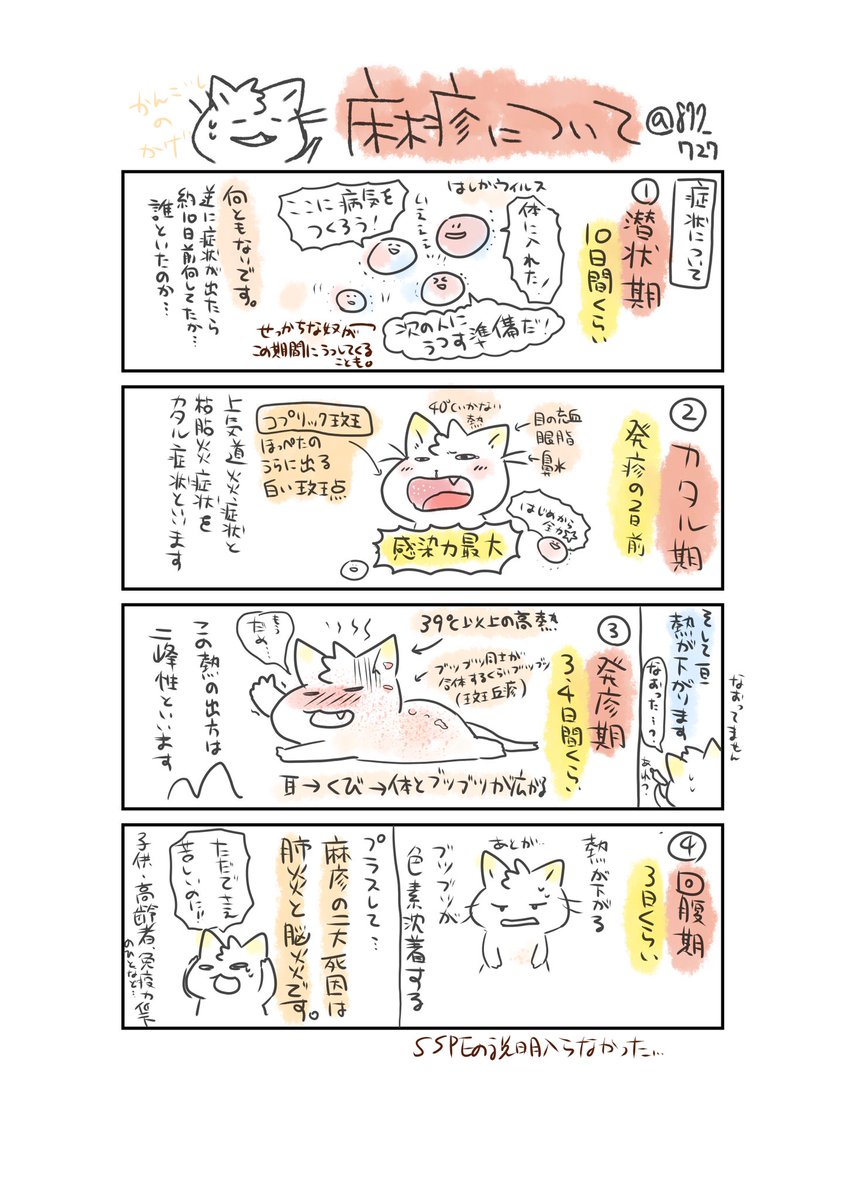 かんごし
の
かげ
麻疹について
@877_
727
症状について
①潜状期
10日間くらい
はしかウィルス
体に入れた!
いえぇぇぇ
ここに病気を
つくろう!
次の人に
うつす準備だ!
せっかちな奴が
この期間にうつしてくる
ことも。
何ともないです。
逆に症状が出たら
約10日前何してたか…
誰といたのか…
②カタル期
発疹の2日前
40℃いかない
熱
目の充血
眼脂
鼻水
コプリック斑
ほっぺたの
うらに出る
白い斑点
はじめから
全力☆
感染力最大
上気道炎症状と
粘膜炎症状を
カタル症状といいます
そして一旦
熱が下がります
なおった…?
あれ?
なおってません
③発疹期
3、4日間くらい
39℃以上の高熱
ブツブツ同士が
合体するくらいブツブツ
(斑丘疹)
もう
だめ…
耳→くび→体とブツブツが広がる
この熱の出方は
二峰性といいます
④回腹期
3日くらい
熱が下がる
あとが…
ブツブツが
色素沈着する
プラスして…
麻疹の二大死因は
肺炎と脳炎です。
ただでさえ
苦しいのに!!
子供・高齢者、免疫力低下
のひとなど…
SSPEの説明入らなかった…